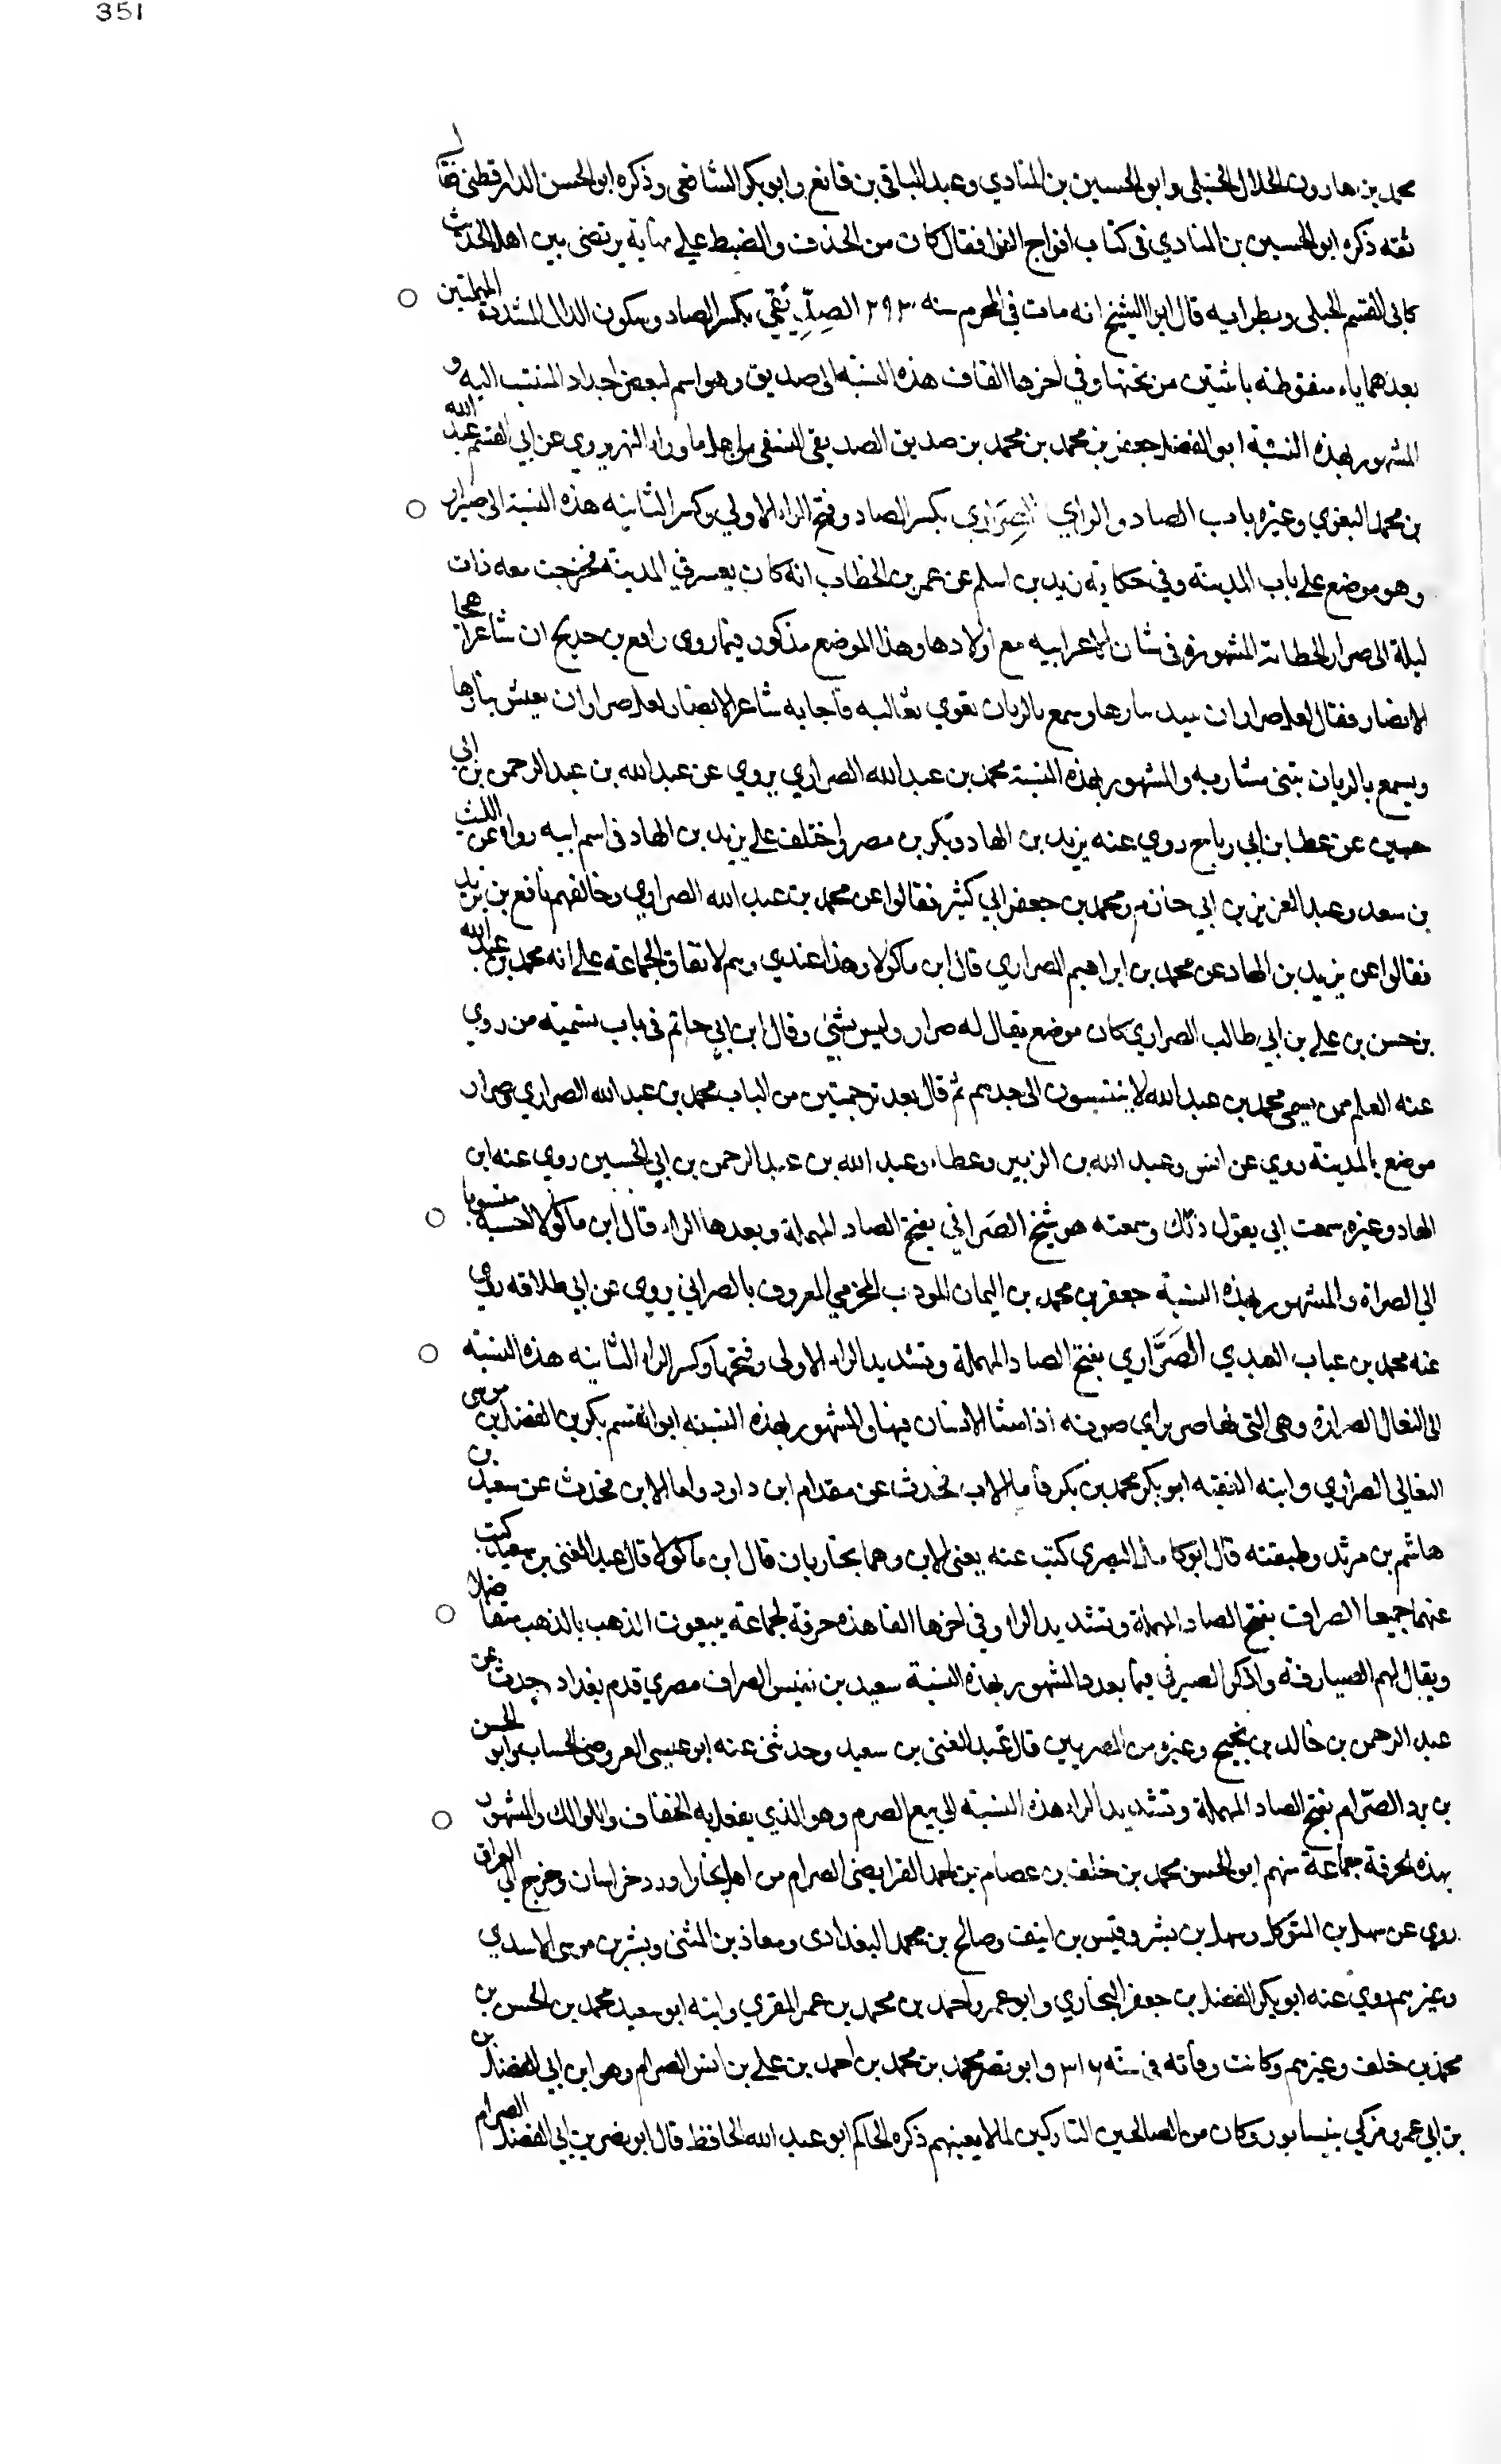 351
محمد بن هارون الخلال الحنبلى وابو الحسين بن المنادي وعبد الباقى بن قانع وابو بكر الشافعى وذكره ابو الحسن الدارقطنى فقال
ثقه ذكره ابو الحسين بن المنادي فى كتاب افواج القرا فقال كان من الحذق والضبط على نهاية يرتضى بين اهل الحديث
كابى القسم الجبلى ونظرايه قال ابو الشيخ انه مات فى المحرم سنه ٢٩٣ الصِدِّيقي بكسر الصاد وسكون الدال المشددة المهملتين
بعدهما ياء منقوطه باثنتين من تحتها وفي اخرها القاف هذه النسبة الى صديق وهو اسم لبعض اجداد المنتسب اليه و
المشهور بهذه النسبة ابو الفضل جعفر بن محمد بن محمد بن صديق الصديقى النسفى من اهل ماوراء النهر يروي عن ابي القسم عبد الله
بن محمد البغوي وغيره باب الصاد والراي الصِرَاري بكسر الصاد وفتح الراء الاولي وكسر الثانيه هذه النسبة الى صرار
وهو موضع على باب المدينة وفي حكاية زيد بن اسلم عن عمر بن الخطاب انه كان يعس في المدينة فخرجت معه ذات
ليلة الى صرار الحكاية المشهورة فى شان الاعرابيه مع اولادها وهذا الموضع مذكور فيما روى رافع بن خديج ان شاعرا هجا
الانصار فقال لعل صرارا ان تبيد بيارها ويسمع بالريان تعوي ثعالبه فاجابه شاعر الانصار لعل صرارا ان تعيش بيارها
ويسمع بالريان تبنى مشاربه والمشهور بهذه النسبة محمد بن عبد الله الصراري يروي عن عبد الله بن عبد الرحمن بن ابى
حسين عن عطا بن ابي رباح روي عنه يزيد بن الهاد وبكر بن مضر واختلف على يزيد بن الهاد فى اسم ابيه رواه عن الليث
بن سعد وعبد العزيز بن ابي حازم ومحمد بن جعفر ابي كثير فقالوا عن محمد بن عبد الله الصراري وخالفهم نافع بن يزيد
فقالوا عن يزيد بن الهاد عن محمد بن ابراهيم الصراري قال ابن ماكولا وهذا عندي وهم لاتفاق الجماعة على انه محمد بن عبد الله
بن حسن بن على بن ابي طالب الصراري كان موضع يقال له صرار وليس بشيئ وقال ابن ابي حاتم فى باب تسمية من روي
عنه العلم ممن يسمى محمد بن عبد الله لا ينتسبون الى جدهم ثم قال بعد ترجمتين من الباب محمد بن عبد الله الصراري وصرار
موضع بالمدينة روي عن انس وعبد الله بن الزبير وعطاء وعبد الله بن عبد الرحمن بن ابي الحسين روي عنه ابن
الهاد وغيره سمعت ابى يقول ذلك وسمعته هو شيخ الصَراتي بفتح الصاد المهملة وبعدها الراء قال ابن ماكولا احسبه منسوبا
الي الصراة والمشهور بهذه النسبة جعفر بن محمد بن اليمان المودب المخرمي المعروف بالصراتي يروى عن ابي حذافه روي
عنه محمد بن عباب العبدي الصَرَّاري بفتح الصاد المهملة وتشديد الراء الاولى وفتحها وكسر الراء الثانيه هذه النسبة
الى النعال الصرارة وهى التى لها صرير اي صوت اذا مشا الانسان فيها والمشهور بهذه النسبة ابو القسم بكر بن الفضل بن موسى
النعالي الصراري وابنه الفقيه ابو بكر محمد بن بكر فاما الاب فحدث عن مقدام ابن داود واما الابن فحدث عن سعيد بن
هاشم بن مرثد وطبقته قال ابو كامل البصري كتب عنه يعنى الابن وهما بخاريان قال ابن ماكولا قال عبد الغنى بن سعيد كتبت
عنهما جميعا الصراف بفتح الصاد المهملة وتشديد الراء وفى اخرها الفا هذه حرفة لجماعة يبيعون الذهب بالذهب متفاضلا
ويقال لهم الصيارفة واذكر الصيرفى فيما بعد والمشهور بهذه النسبة سعيد بن نفيس الصراف مصري قدم بغداد وحدث عن
عبد الرحمن بن خالد بن نجيح وغيره من المصريين قال عبد الغنى بن سعيد وحدثنى عنه ابو عيسى العروضى الحساب وابو الحسن
بن برد الصرّام بفتح الصاد المهملة وتشديد الراء هذه النسبة الى بيع الصرم وهو الذي ينعل به الخفاف واللوالك والمشهور
بهذه الحرفة جماعة منهم ابو الحسن محمد بن خلف بن عصام بن احمد الفرايضى الصرام من اهل بخارا ورد خراسان وخرج الى العراق
روي عن سهل بن المتوكل وسهل بن بشر وقيس بن انيف وصالح بن محمد البغدادى ومعاذ بن المثنى وبشر بن موسى الاسدي
وغيرهم روي عنه ابو بكر الفضل بن جعفر البخاري وابو عمرو احمد بن محمد بن عمر المقري وابنه ابو سعيد محمد بن الحسن بن
محمد بن خلف وغيرهم وكانت وفاته فى سنة ٣١٦ وابو نصر محمد بن محمد بن احمد بن على بن انس الصرام وهو ابن ابي الفضل بن
بن ابي عمرو مزكي بنيسابور وكان من الصالحين التاركين لما لا يعنيهم ذكره الحاكم ابو عبد الله الحافظ قال ابو نصر بن ابي الفضل الصرام